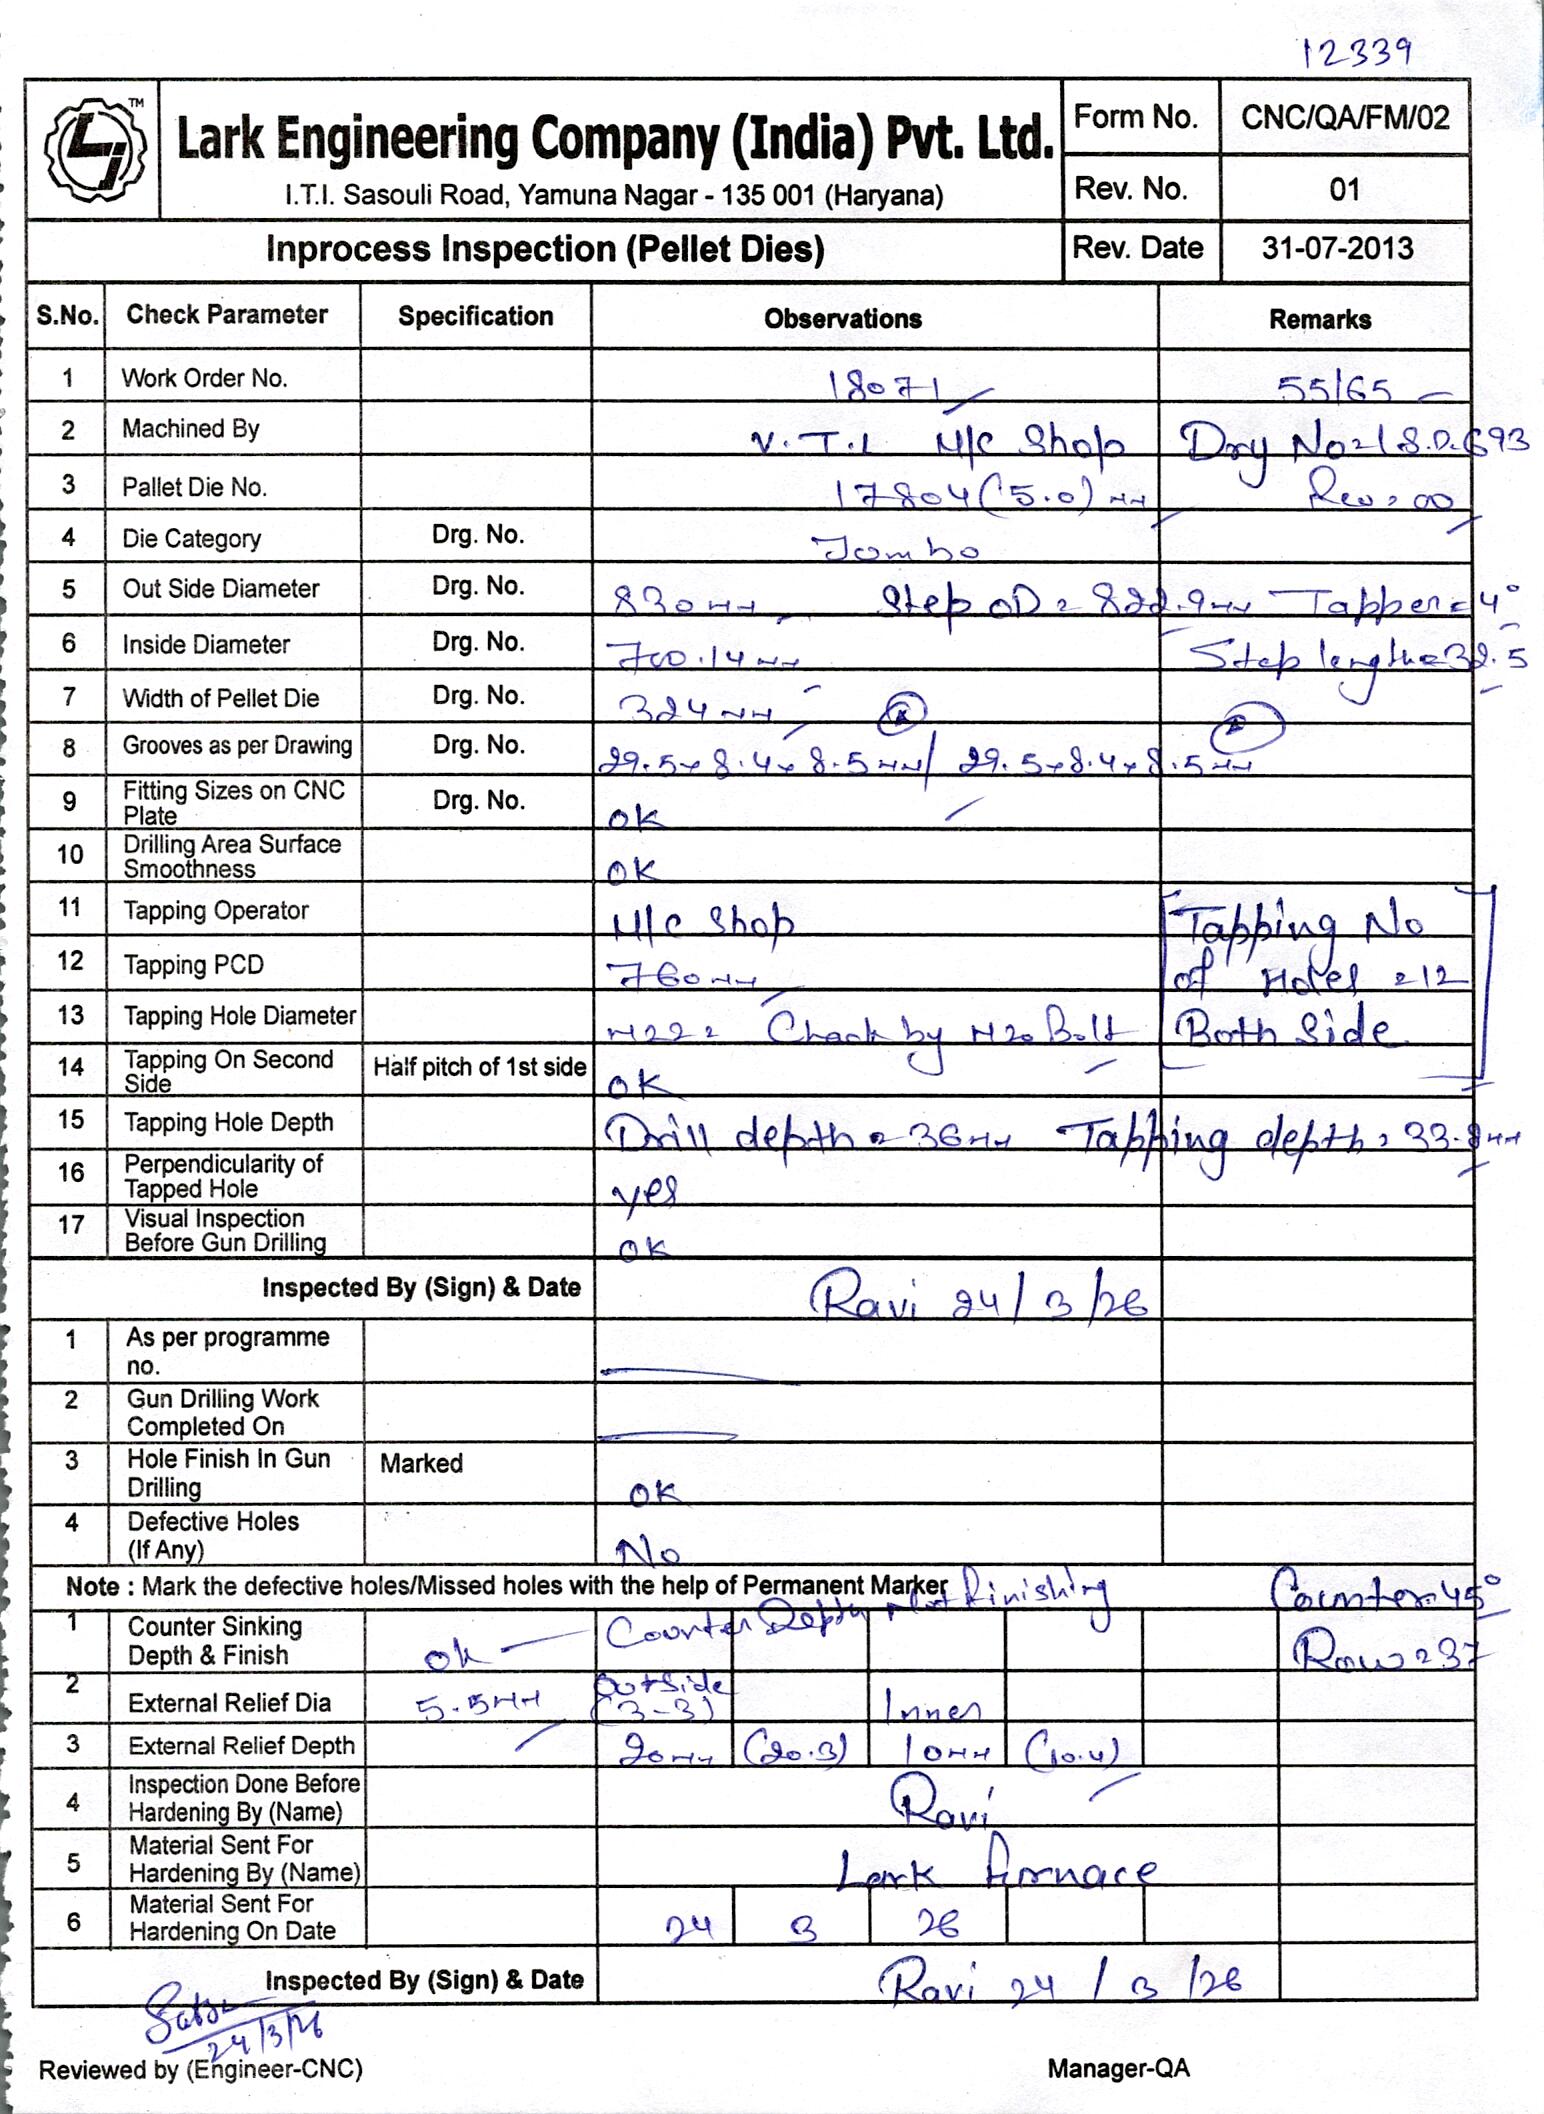 12339
TM
Lark Engineering Company (India) Pvt. Ltd.
I.T.I. Sasouli Road, Yamuna Nagar - 135 001 (Haryana)
Form No. CNC/QA/FM/02
Rev. No. 01
Inprocess Inspection (Pellet Dies) Rev. Date 31-07-2013
S.No. Check Parameter Specification Observations Remarks
1 Work Order No. 18071 55/65
2 Machined By V.T.L M/C Shop Drg No = 1 S.D.693
3 Pallet Die No. 17804 (5.0) mm Rev = 00
4 Die Category Drg. No. Jombo
5 Out Side Diameter Drg. No. 830mm Step OD = 822.9mm Tapper = 4°
6 Inside Diameter Drg. No. 700.14mm Step length = 32.5
7 Width of Pellet Die Drg. No. 324mm
8 Grooves as per Drawing Drg. No. 29.5x8.4x8.5mm / 29.5x8.4x8.5mm
9 Fitting Sizes on CNC Plate Drg. No. OK
10 Drilling Area Surface Smoothness OK
11 Tapping Operator M/C Shop Tapping No
12 Tapping PCD 760mm of Holes = 12
13 Tapping Hole Diameter M22 = Chack by M20 Bolt Both Side
14 Tapping On Second Side Half pitch of 1st side OK
15 Tapping Hole Depth Drill depth = 36mm Tapping depth = 33.8mm
16 Perpendicularity of Tapped Hole yes
17 Visual Inspection Before Gun Drilling OK
Inspected By (Sign) & Date Ravi 24/3/26
1 As per programme no.
2 Gun Drilling Work Completed On
3 Hole Finish In Gun Drilling Marked OK
4 Defective Holes (If Any) No
Note : Mark the defective holes/Missed holes with the help of Permanent Marker Counter 45°
1 Counter Sinking Depth & Finish OK Counter Depth finishing Row = 37
2 External Relief Dia 5.5mm Outside (3-3) Inner
3 External Relief Depth 20mm (20.3) 10mm (10.4)
4 Inspection Done Before Hardening By (Name) Ravi
5 Material Sent For Hardening By (Name) Lark furnace
6 Material Sent For Hardening On Date 24 3 26
Inspected By (Sign) & Date Ravi 24/3/26
24/3/26
Reviewed by (Engineer-CNC) Manager-QA